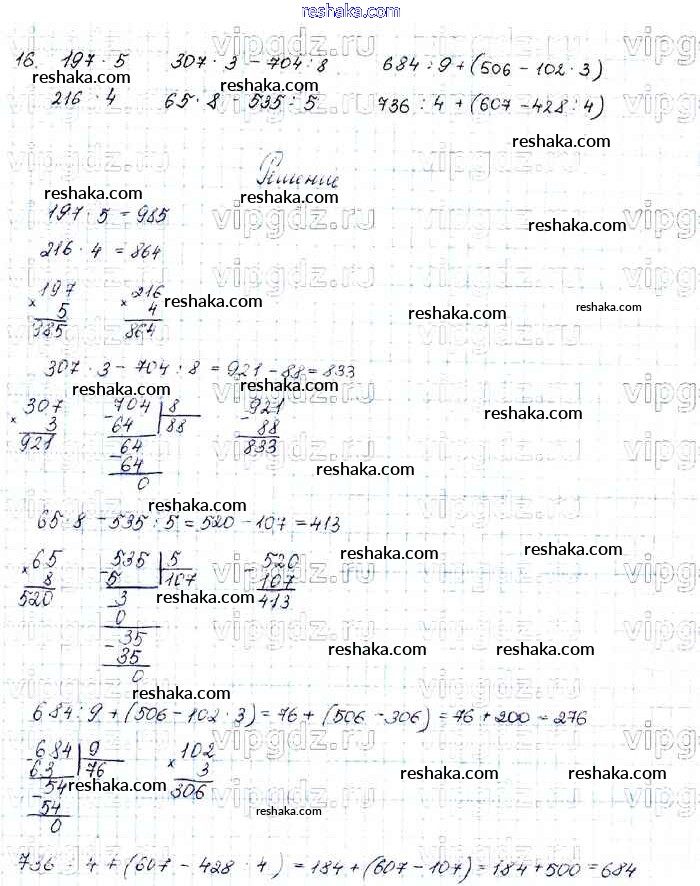 reshaka.com
16. 197 · 5   307 · 3 − 704 : 8   684 : 9 + (506 − 102 · 3)
216 · 4   65 · 8 − 535 : 5   736 : 4 + (607 − 428 : 4)
Решение
197 · 5 = 985
216 · 4 = 864
× 197   × 216
5   4
985   864
307 · 3 − 704 : 8 = 921 − 88 = 833
× 307   − 704 | 8   − 921
3   64 | 88   88
921   − 64   833
64
0
65 · 8 − 535 : 5 = 520 − 107 = 413
× 65   − 535 | 5   − 520
8   5 | 107   107
520   − 3   413
0
− 35
35
0
684 : 9 + (506 − 102 · 3) = 76 + (506 − 306) = 76 + 200 = 276
− 684 | 9   × 102
63 | 76   3
− 54   306
54
0
736 : 4 + (607 − 428 : 4) = 184 + (607 − 107) = 184 + 500 = 684
reshaka.com
vipgdz.ru